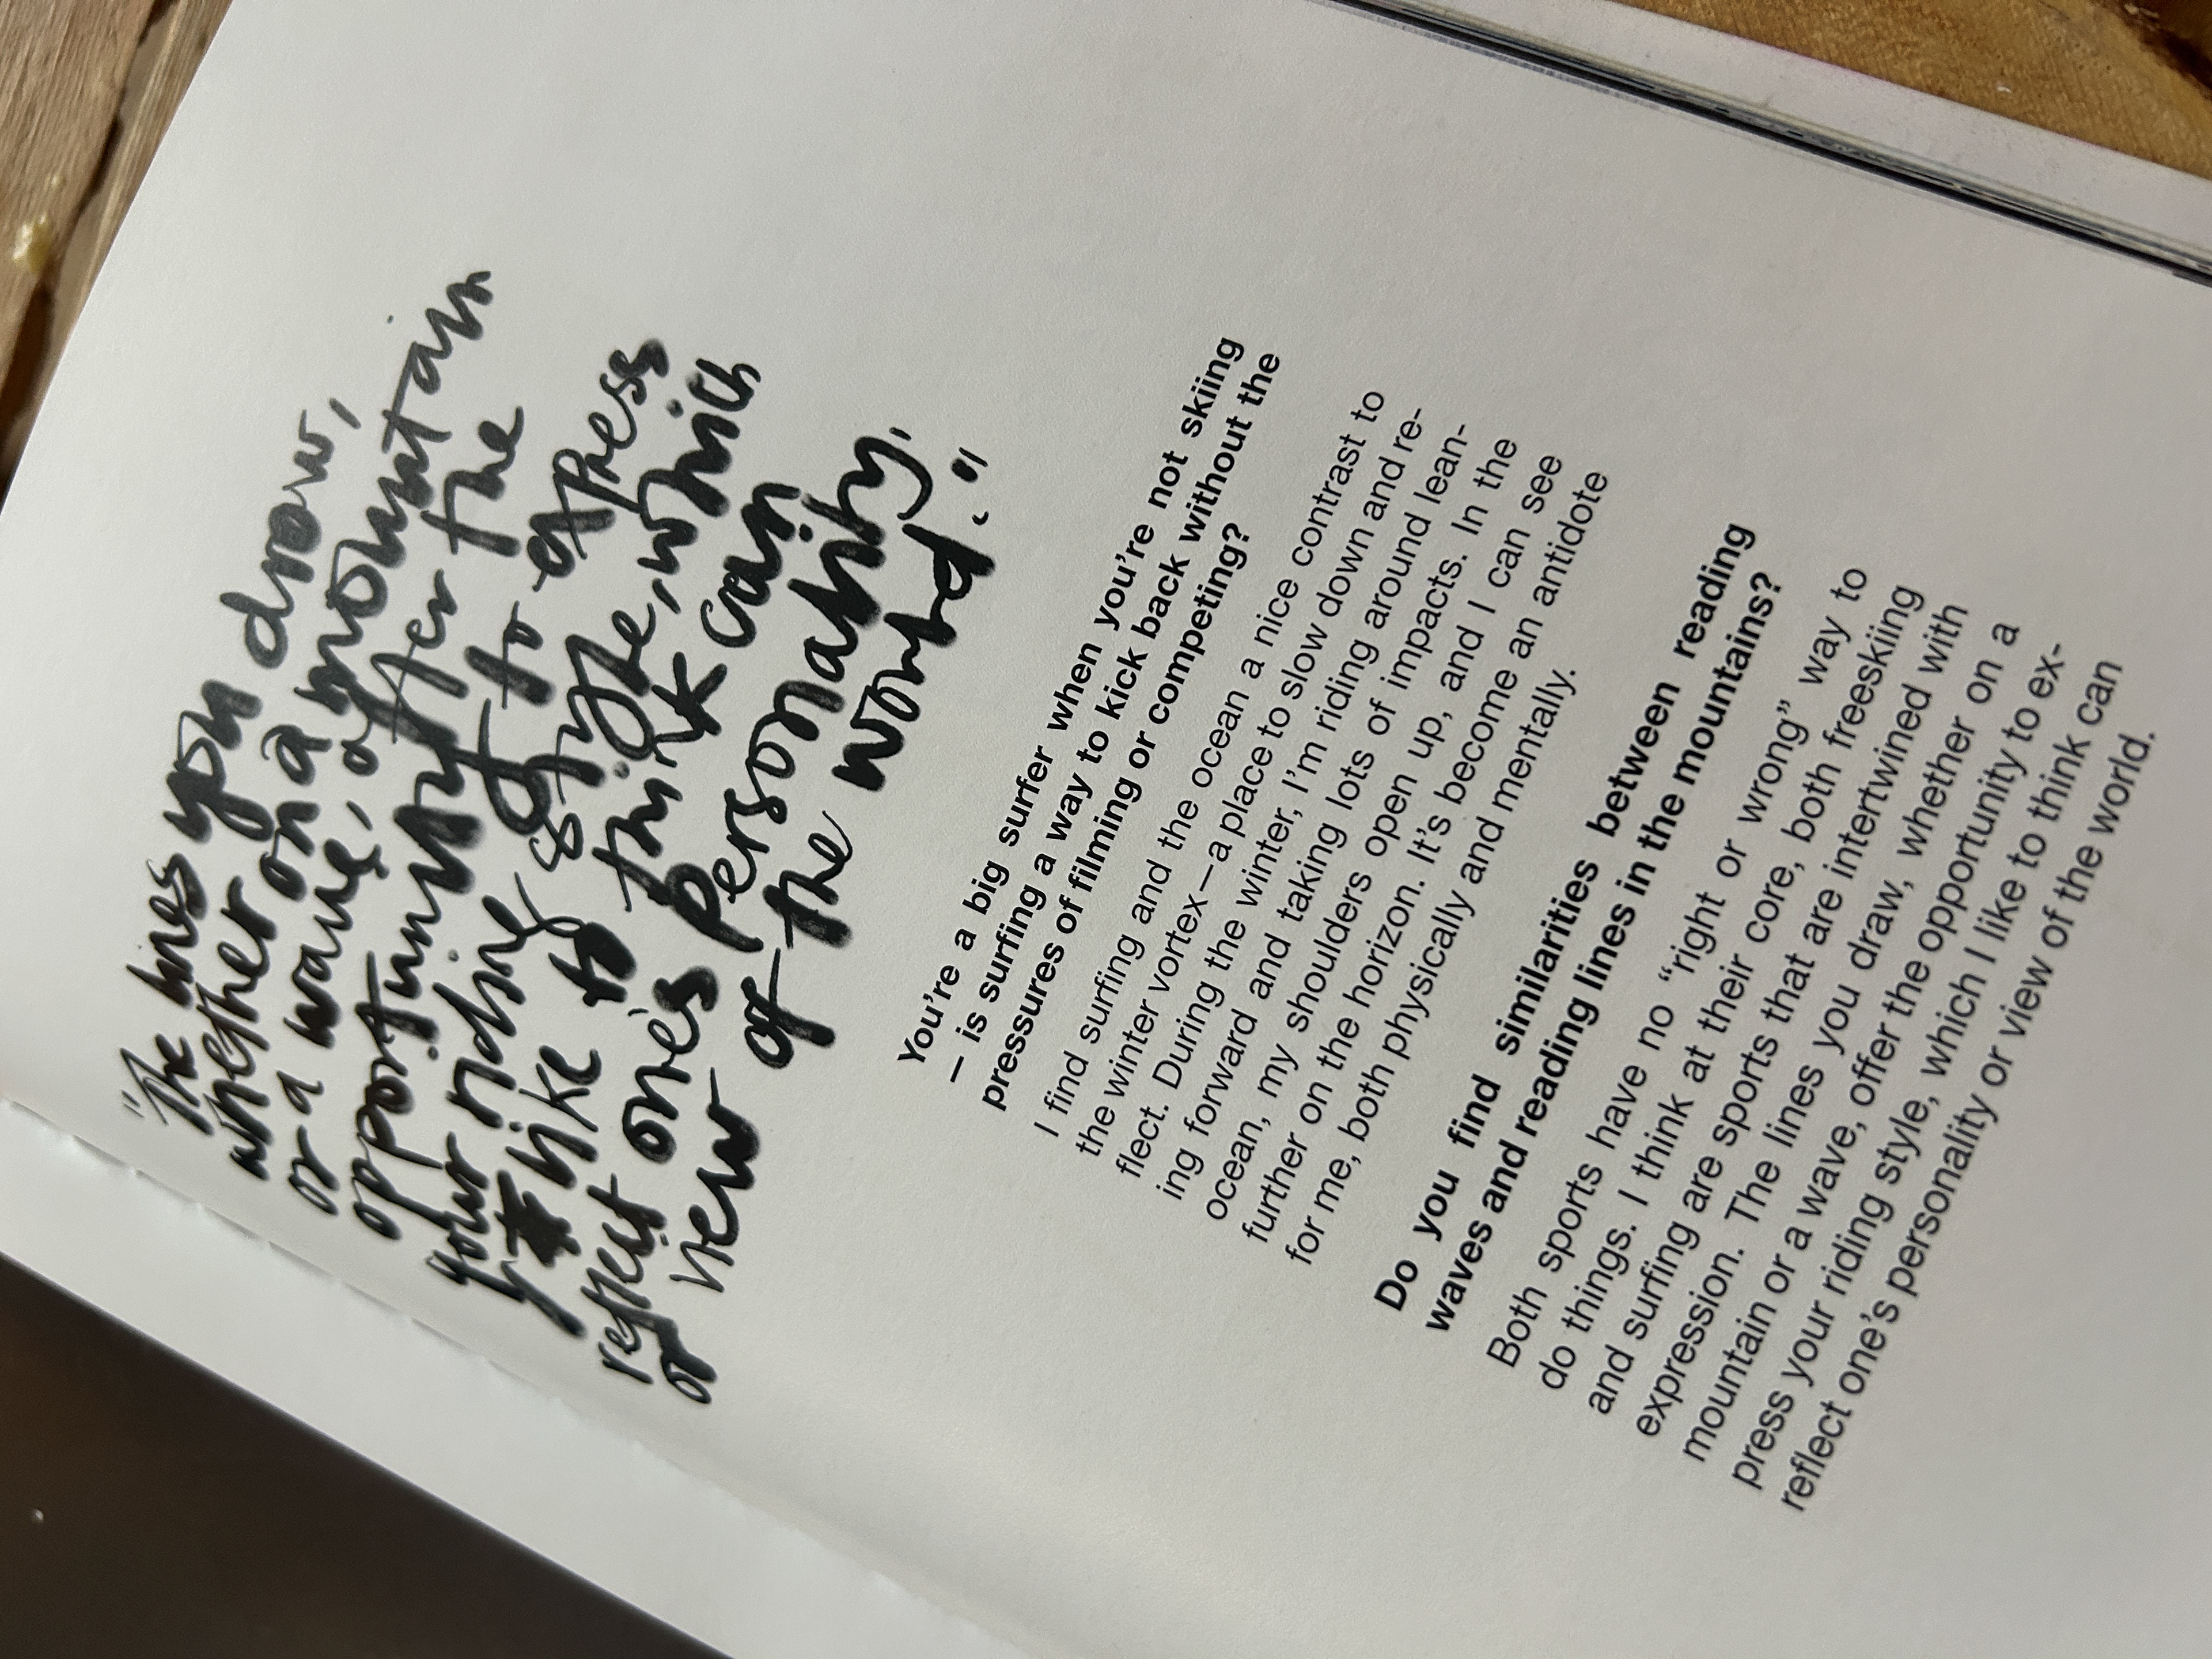 "The lines you draw,
whether on a mountain
or a wave, offer the
opportunity to express
your riding style, which
I like to think can
reflect one's personality.
or view of the world."
You're a big surfer when you're not skiing
– is surfing a way to kick back without the
pressures of filming or competing?
I find surfing and the ocean a nice contrast to
the winter vortex—a place to slow down and re-
flect. During the winter, I'm riding around lean-
ing forward and taking lots of impacts. In the
ocean, my shoulders open up, and I can see
further on the horizon. It's become an antidote
for me, both physically and mentally.
Do you find similarities between reading
waves and reading lines in the mountains?
Both sports have no “right or wrong” way to
do things. I think at their core, both freeskiing
and surfing are sports that are intertwined with
expression. The lines you draw, whether on a
mountain or a wave, offer the opportunity to ex-
press your riding style, which I like to think can
reflect one's personality or view of the world.